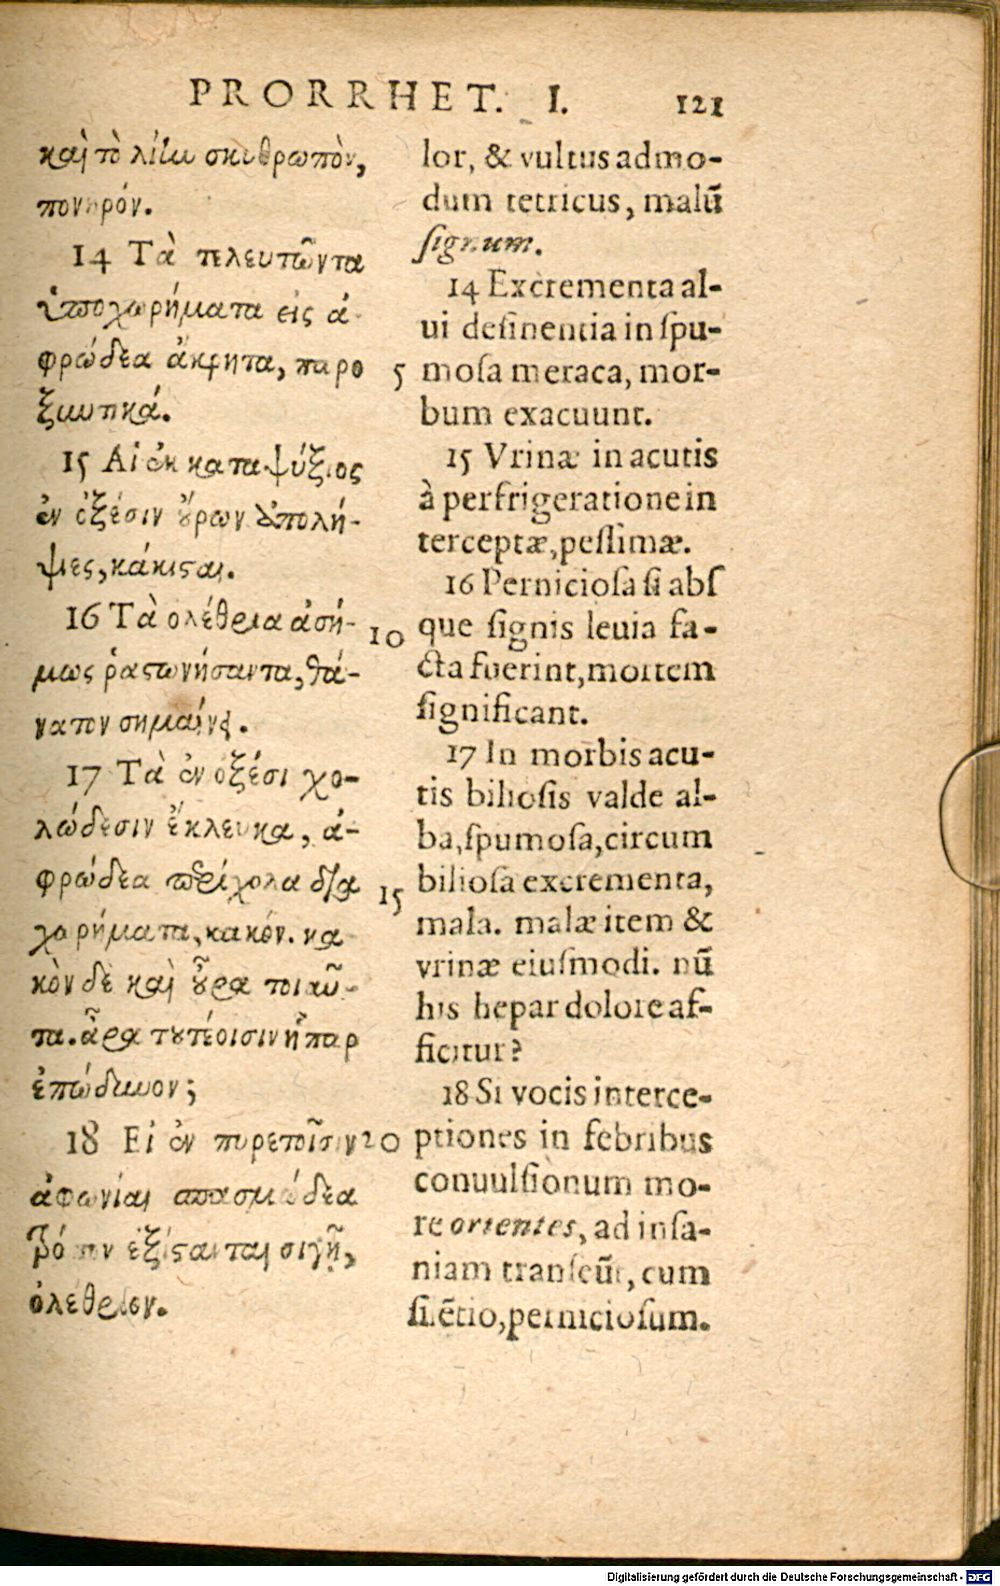 PRORRHET. I. 121
καὶ τὸ λίην σκυθρωπὸν,
πονηρόν.
14 Τὰ τελευτῶντα
ὑποχωρήματα εἰς ἀ-
φρώδεα ἄκρητα, παρο
ξυντικά.
15 Αἱ ἐκ καταψύξιος
ἐν ὀξέσιν οὔρων ἀπολή-
ψιες, κάκισται.
16 Τὰ ὀλέθρια ἀσή-
μως ῥαστωνήσαντα, θά-
νατον σημαίνει.
17 Τὰ ἐν ὀξέσι χο-
λώδεσιν ἔκλευκα, ἀ-
φρώδεα περίχολα δια
χωρήματα, κακόν. κα
κὸν δὲ καὶ οὖρα τοιαῦ-
τα. ἆρα τουτέοισιν ἧπαρ
ἐπώδυνον;
18 Εἰ ἐν πυρετοῖσιν
ἀφωνίαι σπασμώδεα
τρόπον ἐξίστανται σιγῇ,
ὀλέθριον.
lor, & vultus admo-
dum tetricus, malū
signum.
14 Excrementa al-
ui desinentia in spu-
5 mosa meraca, mor-
bum exacuunt.
15 Vrinæ in acutis
à perfrigeratione in
terceptæ, pessimæ.
16 Perniciosa si abs
10 que signis leuia fa-
cta fuerint, mortem
significant.
17 In morbis acu-
tis biliosis valde al-
ba, spumosa, circum
15 biliosa excrementa,
mala. malæ item &
vrinæ eiusmodi. nū
his hepar dolore af-
ficitur?
18 Si vocis interce-
20 ptiones in febribus
conuulsionum mo-
re orientes, ad insa-
niam transeūt, cum
silētio, perniciosum.
Digitalisierung gefördert durch die Deutsche Forschungsgemeinschaft - DFG